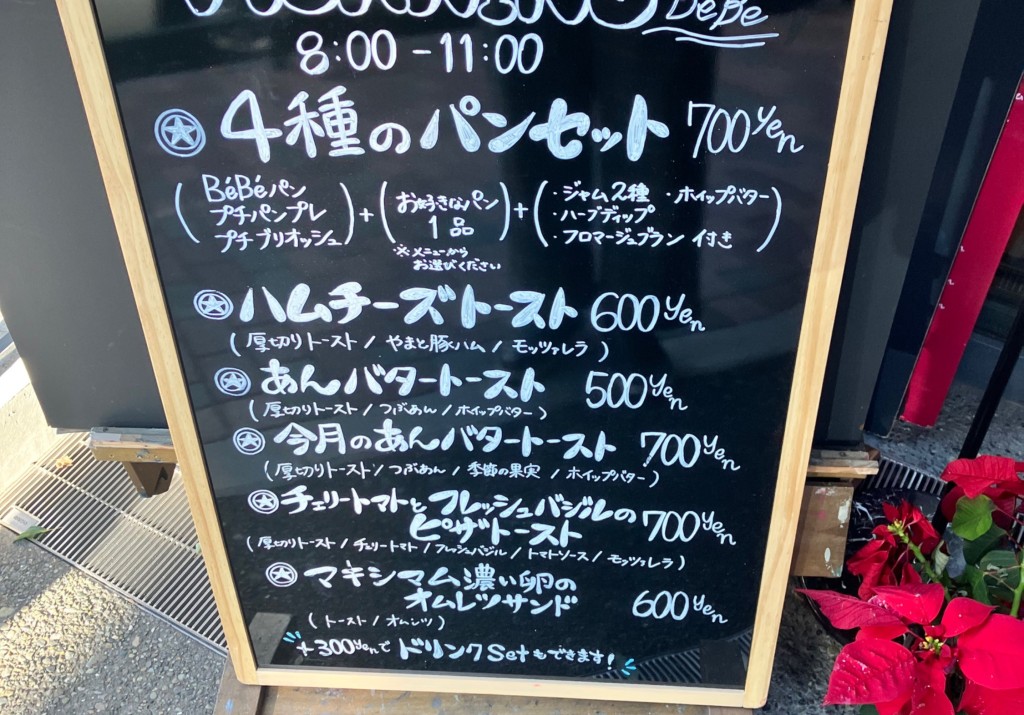 BéBé
8:00 - 11:00
4種のパンセット 700yen
(BéBéパン プチパンプレ プチブリオッシュ) + (お好きなパン 1品) + (・ジャム2種 ・ホイップバター ・ハーブディップ ・フロマージュブラン 付き)
※メニューから
お選びください
ハムチーズトースト 600yen
(厚切りトースト / やまと豚ハム / モッツァレラ)
あんバタートースト 500yen
(厚切りトースト / つぶあん / ホイップバター)
今月のあんバタートースト 700yen
(厚切りトースト / つぶあん / 季節の果実 / ホイップバター)
チェリートマトとフレッシュバジルの
ピザトースト 700yen
(厚切りトースト / チェリートマト / フレッシュバジル / トマトソース / モッツァレラ)
マキシマム濃い卵の
オムレツサンド 600yen
(トースト / オムレツ)
+300yenで ドリンクSetもできます!